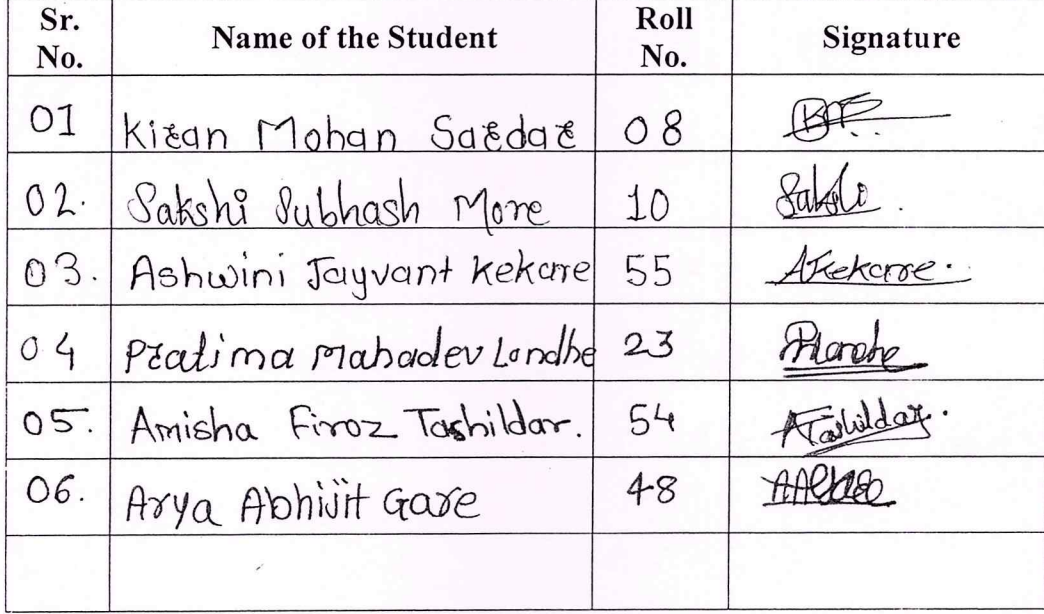 Sr. No. Name of the Student Roll No. Signature
01 Kiran Mohan Sardar 08
02. Sakshi Subhash More 10 Sakshi.
03. Ashwini Jayvant Kekare 55 AKekare.
04 Pratima Mahadev Londhe 23 PLondhe
05. Amisha Firoz Tashildar. 54 ATashildar.
06. Arya Abhijit Gare 48